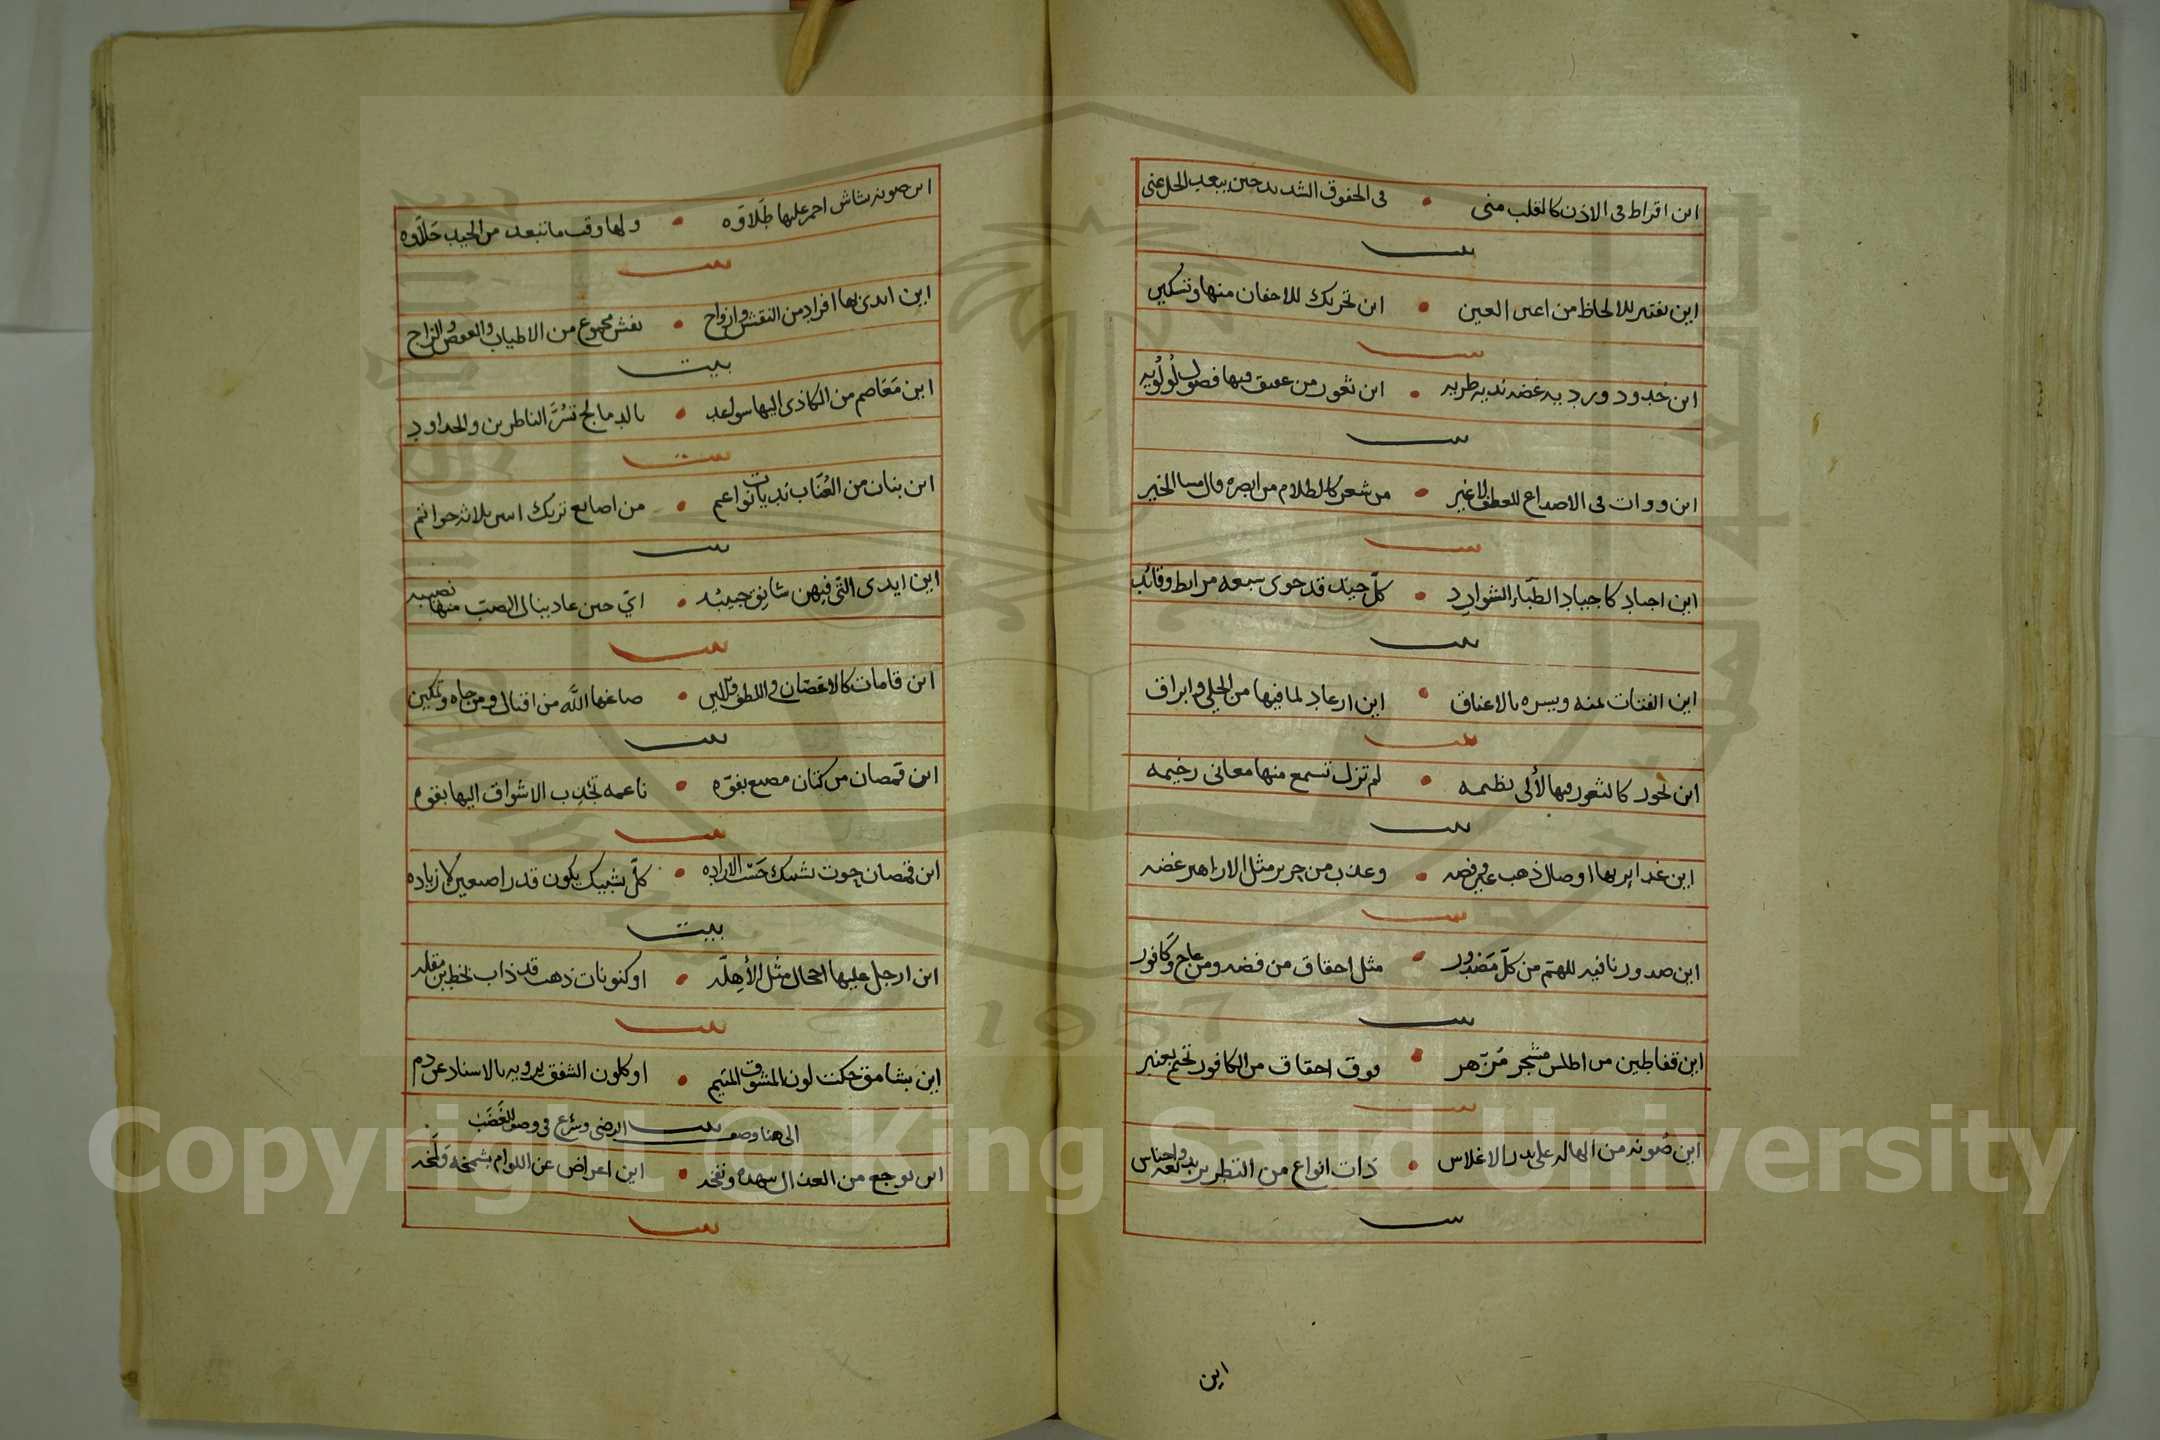 اين اقراط فى الاذن كالقلب منى • فى الخفوق الشديد حين يبعد الخل عنى
بيت
اين تفتير للالحاظ من اعين العين • اين تحريك للاجفان منها وتسكين
بيت
اين خدود ورديه غضه نديه طريه • اين ثغور من عقيق فيها فصول لولويه
بيت
اين ووات فى الاصداع للعطف لا غير • من شعر كالظلام من ابصره قال مسا الخير
بيت
اين اجياد كاجياد الظباء الشوارد • كل جيد قد حوى سبعه مرابط وقائد
بيت
اين الفتات يمنه ويسره بالاعناق • اين ارعاد لما فيها من الحلي وابراق
بيت
اين نحور كالثغور فيها لألى نظيمه • لم تزل تسمع منها معانى رخيمه
بيت
اين غداير بها اوصال ذهب على فضه • وعذب من حرير مثل الازاهر غضه
بيت
اين صدور نافيه للهم من كل مصدور • مثل احقاق من فضه ومن عاج وكافور
بيت
اين قفاطين من اطلس مشجر مزهر • فوق احقاق من الكافور تختم بعنبر
بيت
اين صونه من الهاله على بدر الاغلاس • ذات انواع من التطريز بديعه واجناس
بيت
اين
اين صونه بشاش احمر عليها طلاوه • ولها وقت ما تبعد من الجيد حلاوه
بيت
اين ايدى بها افراد من النقش وازواج • نقش مجموع من الاطياب والعفص والزاج
بيت
اين معاصم من الكاذى اليها سواعد • بالدمالج تسر الناظرين والحداود
بيت
اين بنان من العناب نديات نواعم • من اصابع تريك اسر ثلاثه خواتم
بيت
اين ايدى التى فيهن شانق جبيبه • اي حين عاد ينال الصب منها نصيبه
بيت
اين قامات كالاغصان فى اللطف واللين • صاغها الله من اقبال ومن جاه وتمكين
بيت
اين قمصان من كتان مصبع بفوه • ناعمه تجذب الاشواق اليها بقوه
بيت
اين قمصان حوت تشبيك حسب الاراده • كل تشبيك يكون قدر اصبعين لا زياده
بيت
اين ارجل عليها احجال مثل الأهله • او كنونات ذهب قد ذاب بخط بن مقله
بيت
اين بشامق حكت لون المشوق المتيم • او كلون الشفق يرويه بالاسناد عن دم
بيت
الى هنا وصف الرضى وشرع فى وصف الغضب
اين توجع من العذال بنهده ونفخه • اين اعراض عن اللوام بشمخه ولخه
بيت
1957
Copyright © King Saud University